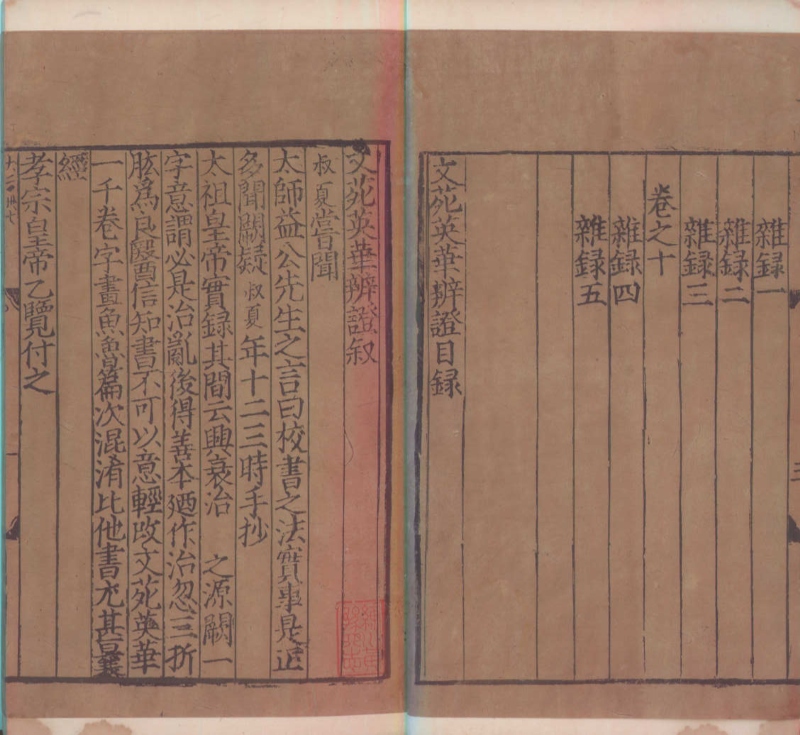 雜録一
雜録二
雜録三
卷之十
雜録四
雜録五
文苑英華辨證目録
文苑英華辨證叙
叔夏嘗聞
太師益公先生之言曰校書之法實事是正
多聞闕疑叔夏年十二三時手抄
太祖皇帝實録其間云興衰治 之源闕一
字意謂必是治亂後得善本廼作治忽三折
肱爲良醫信知書不可以意輕改文苑英華
一千卷字畫魚魯篇次混淆比他書尤甚曩
經
孝宗皇帝乙覽付之